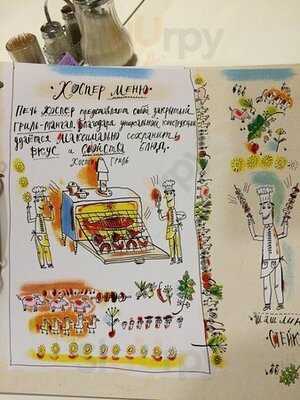 · Хоспер Меню ·
Печь Хоспер представляет собой закрытый
гриль-мангал. Благодаря уникальной конструкции
удаётся максимально сохранить
вкус и свойства блюд.
Хоспер гриль
Шашлык
Стейк